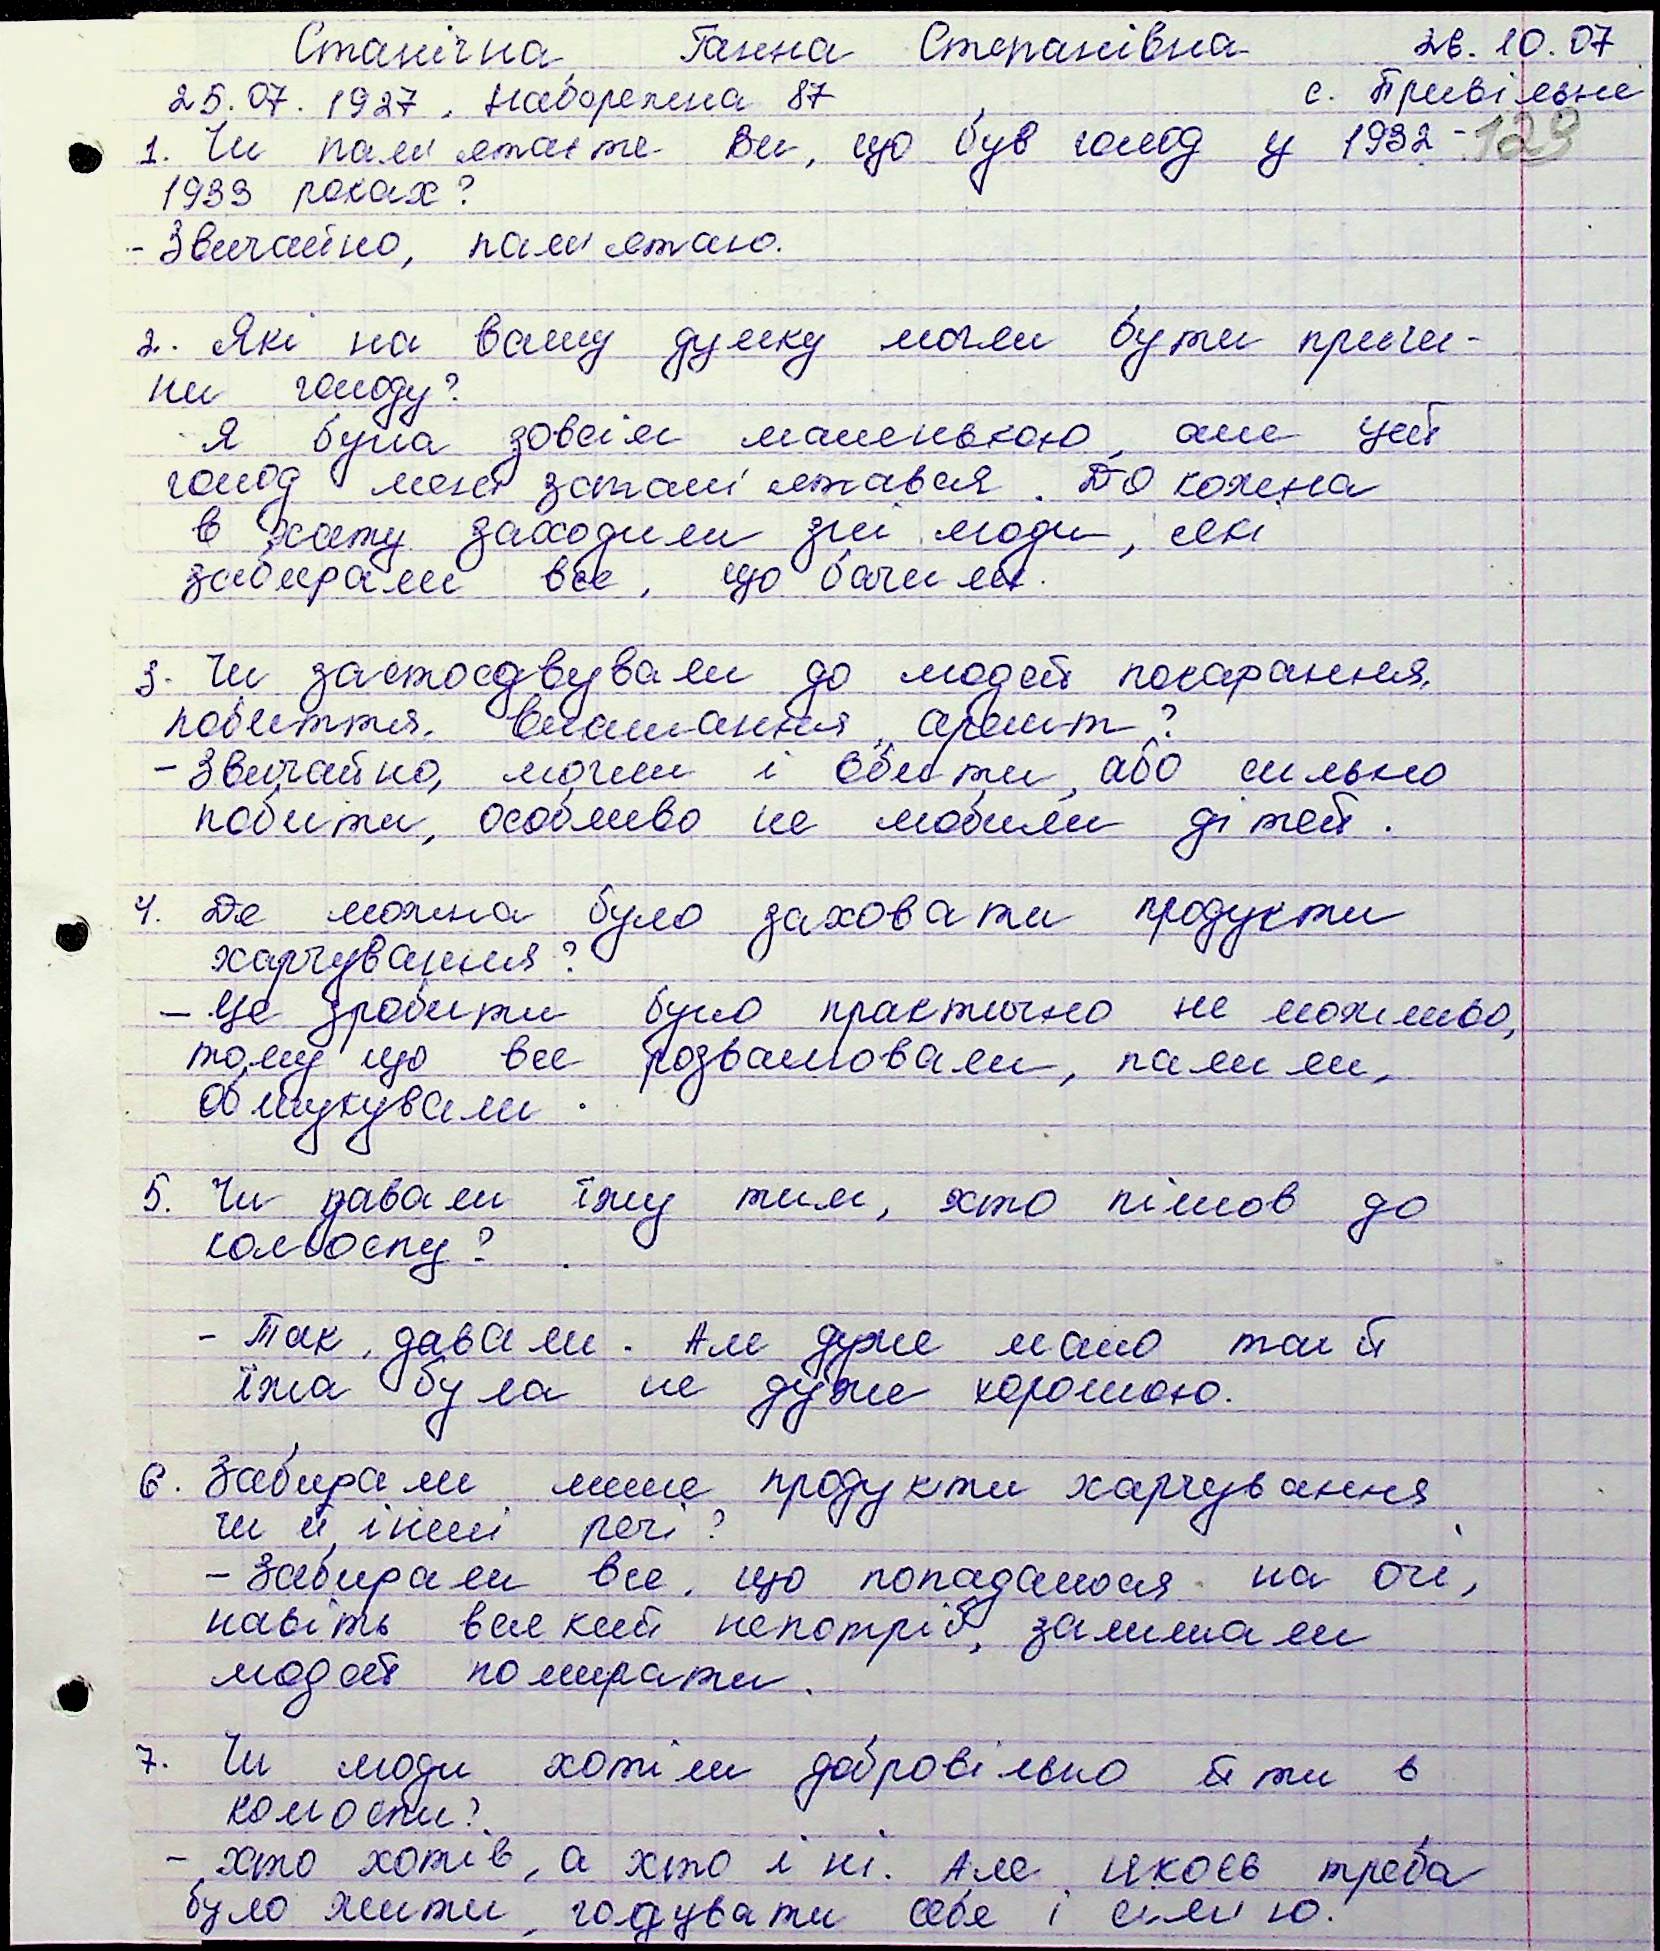 Станічна Ганна Степанівна 26.10.07
25.07.1927, Набережна 87 с. Привільне
1. Чи пам'ятаєте Ви, що був голод у 1932- 129
1933 роках?
- Звичайно, пам'ятаю.
2. Які на вашу думку могли бути причи-
ни голоду?
Я була зовсім маленькою, але цей
голод мені запам'ятався. До кожна
в хату заходили злі люди, які
забирали все, що бачили.
3. Чи застосовували до людей покарання,
побиття, виселення, арешт?
- Звичайно, могли і вбити, або сильно
побити, особливо не любили дітей.
4. Де можна було заховати продукти
харчування?
- Це зробити було практично не можливо,
тому що все розвалювали, палили,
обшукували.
5. Чи давали їжу тим, хто пішов до
колгоспу?
- Так, давали. Але дуже мало та й
їжа була не дуже хорошою.
6. Забирали лише продукти харчування
чи й інші речі?
- Забирали все, що попадалося на очі,
навіть всякий непотріб, залишали
людей помирати.
7. Чи люди хотіли добровільно йти в
колгоспи?
- хто хотів, а хто і ні. Але якось треба
було жити, годувати себе і сім'ю.